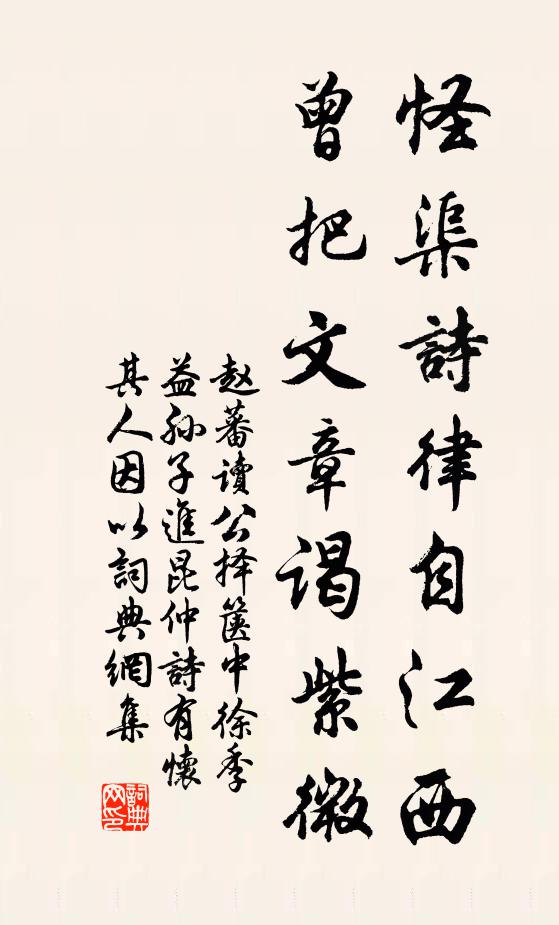 怪渠詩律自江西
曾把文章謁紫微
赵蕃讀公择箧中徐季
益孙子進昆仲詩有懷
其人因以詞典網集
詞典网印